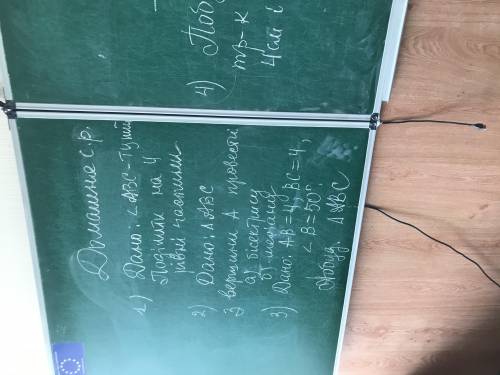 Домашнє с.р.
1) Дано: <ABC - тупий
Поділити на 4
рівні частини
2) Дано: △ABC
З вершини A провести
а) бісектрису
б) медіану
3) Дано: AB=4, BC=4,
<B=50°
Побуд. △ABC
4) Побу
тр-к
4см і